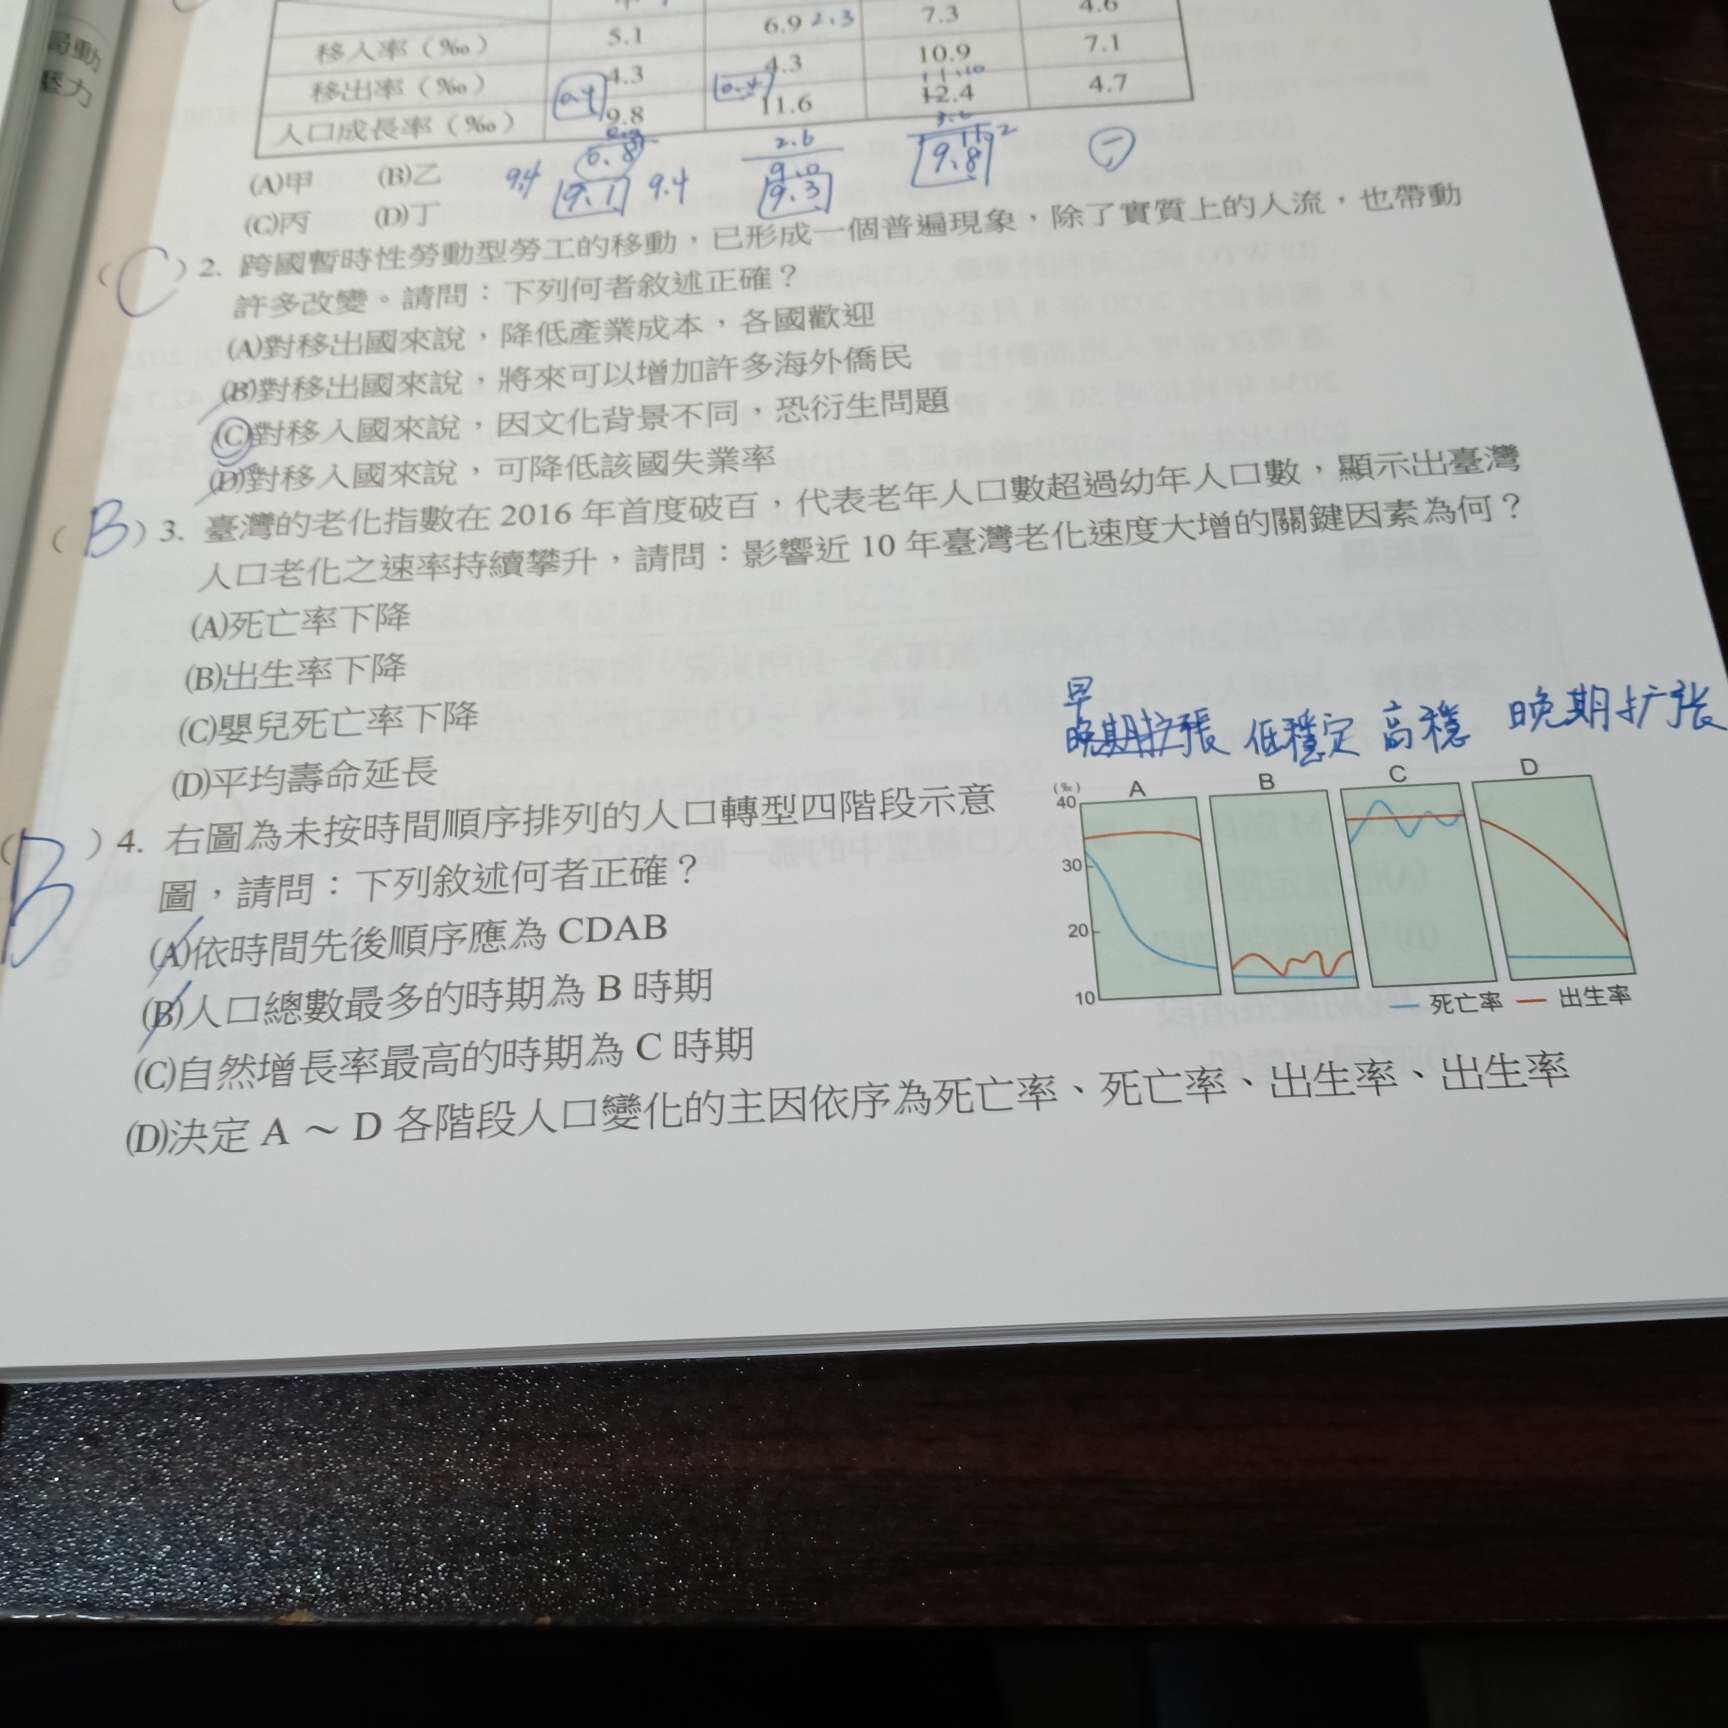 局動
壓力
6.9 2.3 7.3 4.6
移入率（‰） 5.1 4.3 10.9 7.1
移出率（‰） 4.3 11.10
人口成長率（‰） 9.8 11.6 12.4 4.7
0.4 0.4
(A)甲 (B)乙
(C)丙 (D)丁
9.4 9.1 9.4 2.6 9.0 9.3 11.2 9.8
(C) 2. 跨國暫時性勞動型勞工的移動，已形成一個普遍現象，除了實質上的人流，也帶動
許多改變。請問：下列何者敘述正確？
(A)對移出國來說，降低產業成本，各國歡迎
(B)對移出國來說，將來可以增加許多海外僑民
(C)對移入國來說，因文化背景不同，恐衍生問題
(D)對移入國來說，可降低該國失業率
(B) 3. 臺灣的老化指數在 2016 年首度破百，代表老年人口數超過幼年人口數，顯示出臺灣
人口老化之速率持續攀升，請問：影響近 10 年臺灣老化速度大增的關鍵因素為何？
(A)死亡率下降
(B)出生率下降
(C)嬰兒死亡率下降
(D)平均壽命延長
(B) 4. 右圖為未按時間順序排列的人口轉型四階段示意
圖，請問：下列敘述何者正確？
(A)依時間先後順序應為 CDAB
(B)人口總數最多的時期為 B 時期
(C)自然增長率最高的時期為 C 時期
(D)決定 A ～ D 各階段人口變化的主因依序為死亡率、死亡率、出生率、出生率
早
晚期扩張 低穩定 高穩 晚期扩张
(‰) A B C D
40
30
20
10
死亡率 出生率